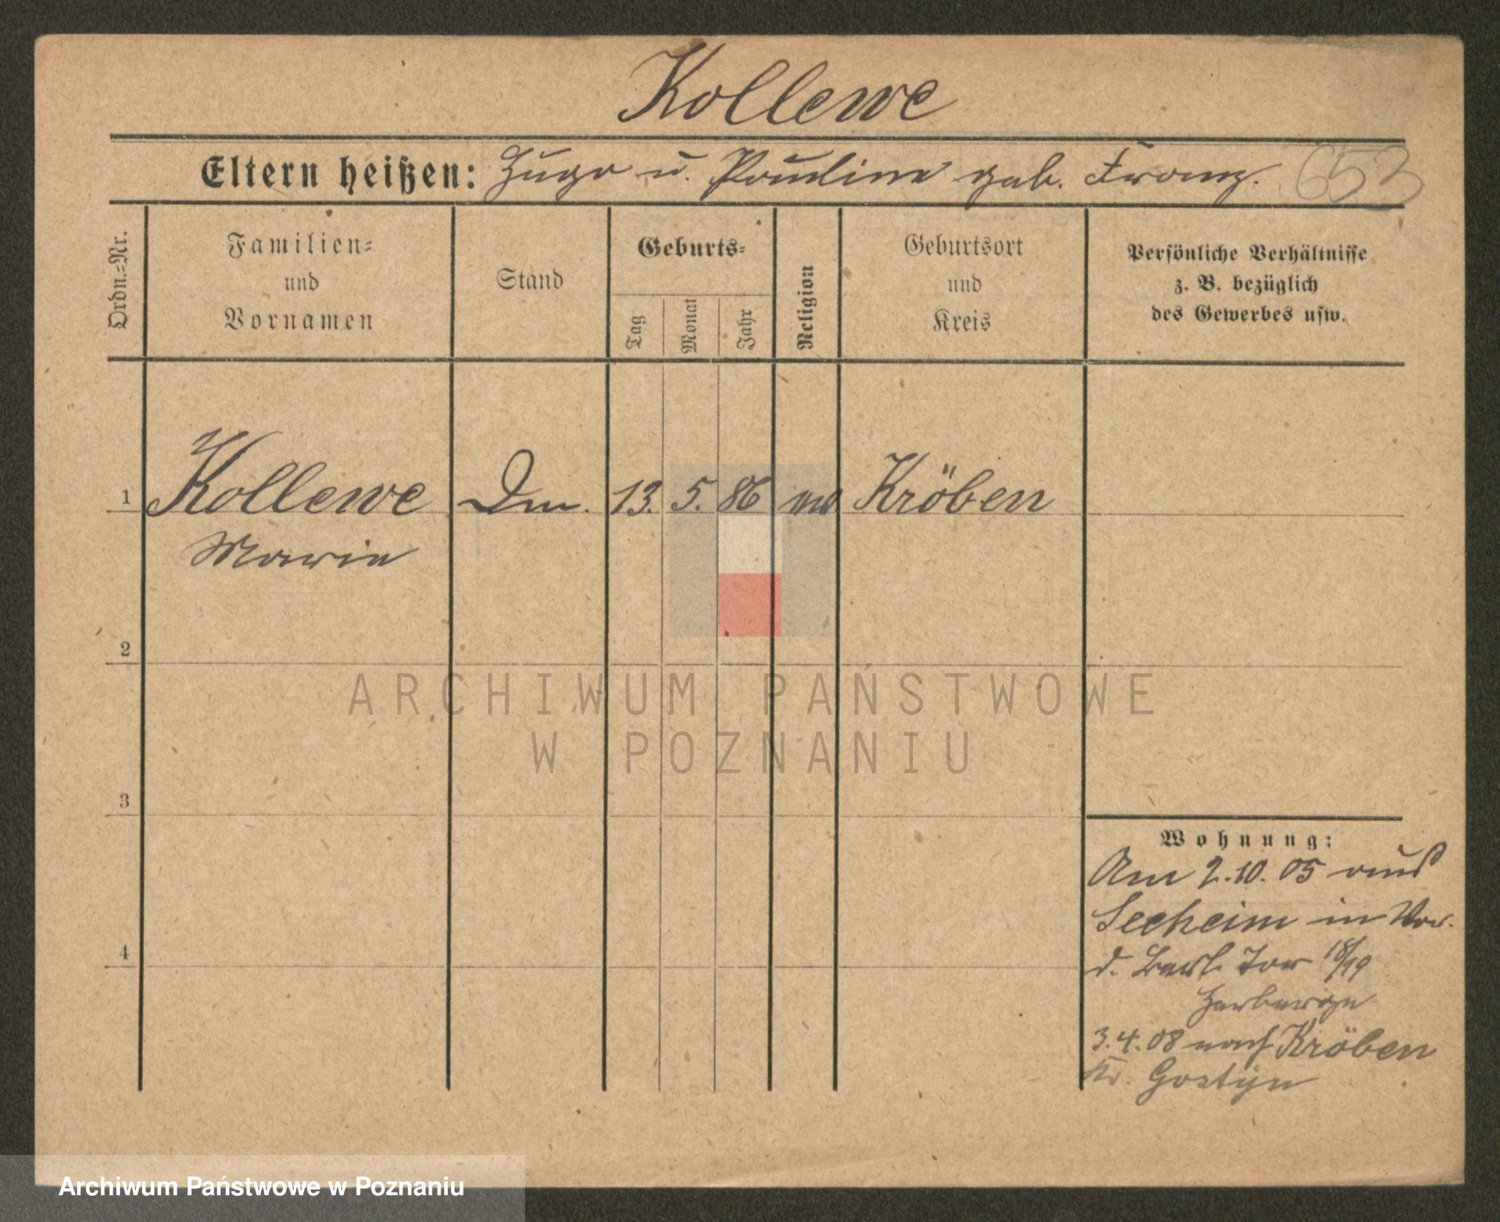 Kollewe
Eltern heißen: Hugo u. Pauline geb. Franz. 653
Ordn.-Nr.
Familien-
und
Vornamen
Stand
Geburts-
Tag
Monat
Jahr
Religion
Geburtsort
und
Kreis
Persönliche Verhältnisse
z. B. bezüglich
des Gewerbes usw.
1 Kollewe Dm. 13. 5. 86 Kröben
Marie
2
3
4
ARCHIWUM PAŃSTWOWE
W POZNANIU
Wohnung:
Am 2.10.05 aus
Seeheim in Vor.
d. Berl. Tor 18/19
Herberge
3.4.08 nach Kröben
Kr. Gostyn
Archiwum Państwowe w Poznaniu